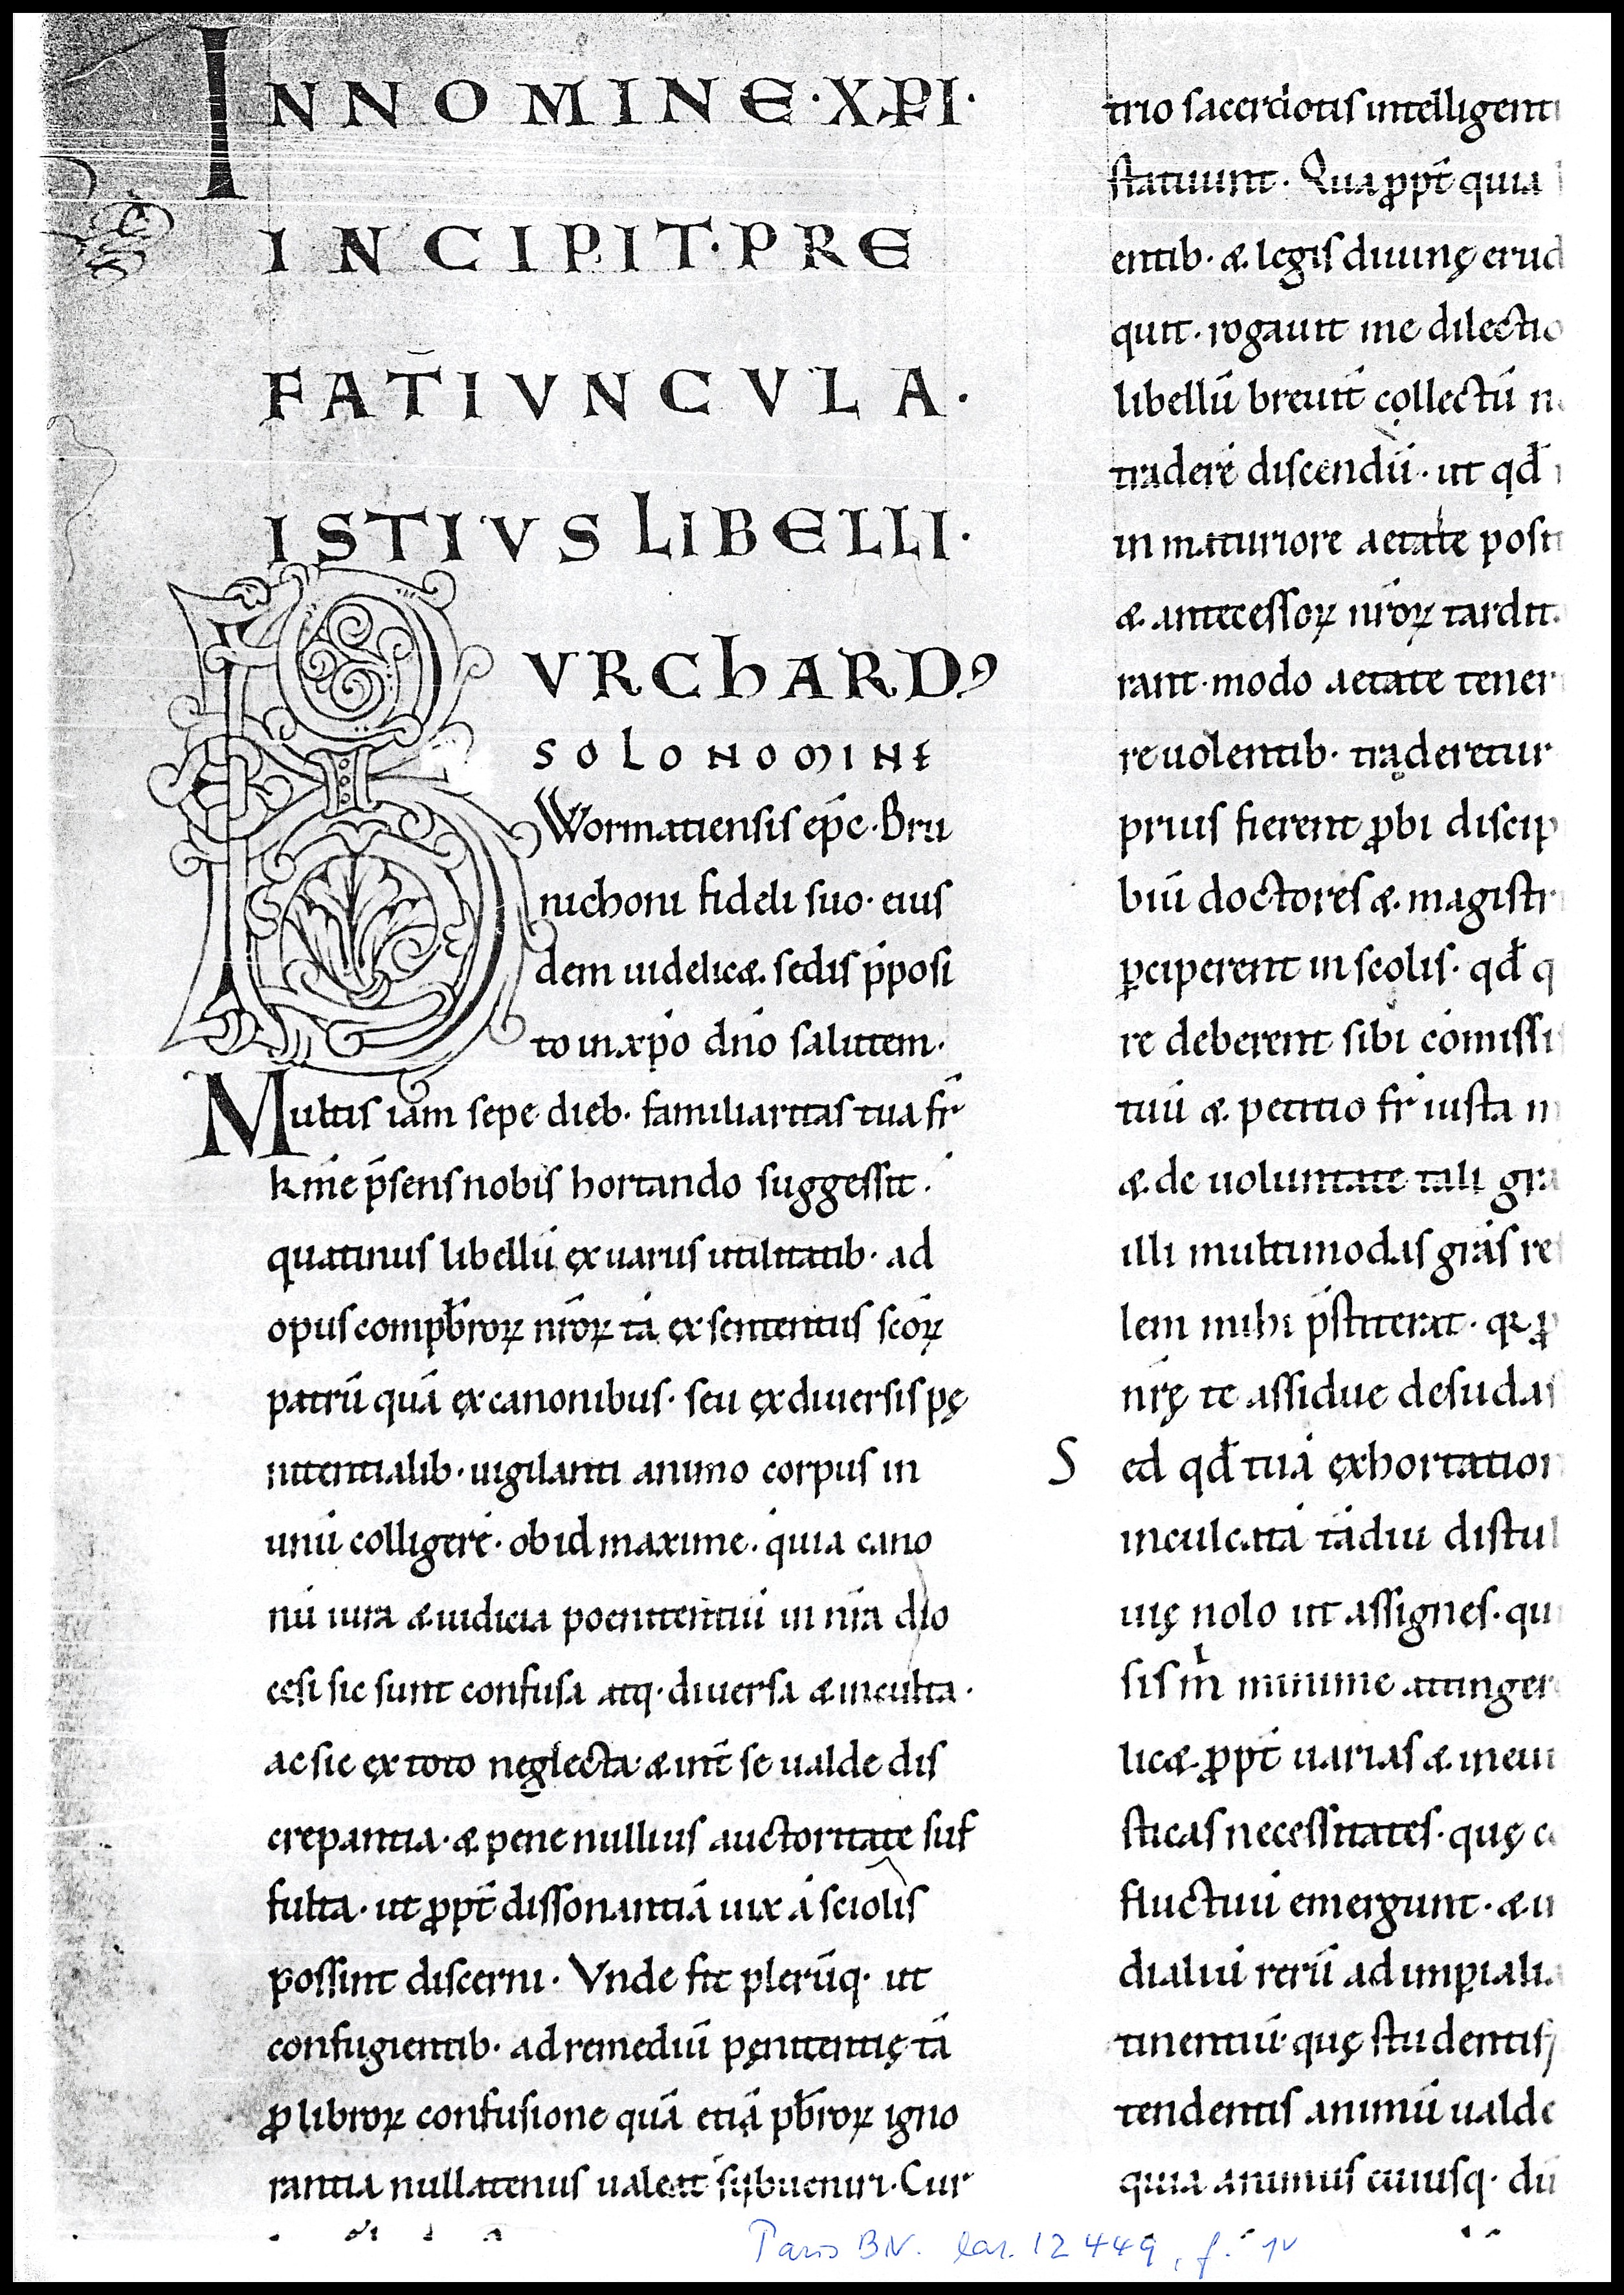 INNOMINE·XPI·
INCIPIT·PRE
FAT̄IVNCVLA·
ISTIVS LIBELLI·
BVRChARDꝰ
SOLO NOMINE
Wormatiensis ep̄c·Bru
nichoni fideli suo· eius
dem uidelic& sedis p̄posi
to in xp̄o dn̄o salutem·
Multis iam sepe dieb· familiaritas tua fr̄
kme p̄sens nobis hortando suggessit·
quatinus libellū ęx uariis utilitatib· ad
opus compb̄roꝝ nr̄oꝝ tā ęx sententiis sc̄oꝝ
patrū quā ęx canonibus· seu ęx diuersis pę
nitentialib· uigilanti animo corpus in
unū colligerē· ob id maxime· quia cano
nū iura & iudicia poenitentiū in nr̄a dio
cesi sic sunt confusa atq· diuersa & inculta·
ac sic ęx toto neglecta· & int̄ se ualde dis
crepantia· & pene nullius auctoritate suf
fulta· ut ꝓpt̄ dissonantiā uix á sciolis
possint discerni· Vnde fit plerūq· ut
confugientib· ad remediū pęnitentię· tā
ꝓ libroꝝ confusione quā etiā pb̄roꝝ igno
rantia nullatenus ualeat subueniri· Cur
trio sacerdotis intelligenti
statuunt· Qua ꝓpt̄ quia
entib· & legis diuinę erud
quit· rogauit me dilectio
libellū breuit̄ collectū n
traderē discendū· ut qđ
in maturiore aetate posit
& antecessoꝝ nr̄oꝝ tardit
rant· modo aetate tener
re uolentib· traderetur
prius fierent ꝓbi discip
biū doctores & magistr
ꝑciperent in scolis· qđ q
re deberent sibi cōmissi
tuū & petitio fr̄ iusta m
& de uoluntate tali gra
illi multimodas grās re
lem mihi p̄stiterat· qꝛ ꝓ
nr̄ę te assidue desudas
S ed qđ tuā ęxhortation
inculcatā tādiu distul
uię nolo ut assignes· qu
sis m̄ minime attinger
lic& ꝓpt̄ uarias & ineui
sticas necessitates· quę c
fluctuū emergunt· & u
dialiū rerū ad imꝑiali
tinentiū· quę studentis
tendentis animū ualde
quia animus cuiusq· du
Paris BN. lat. 12449, f. 1v